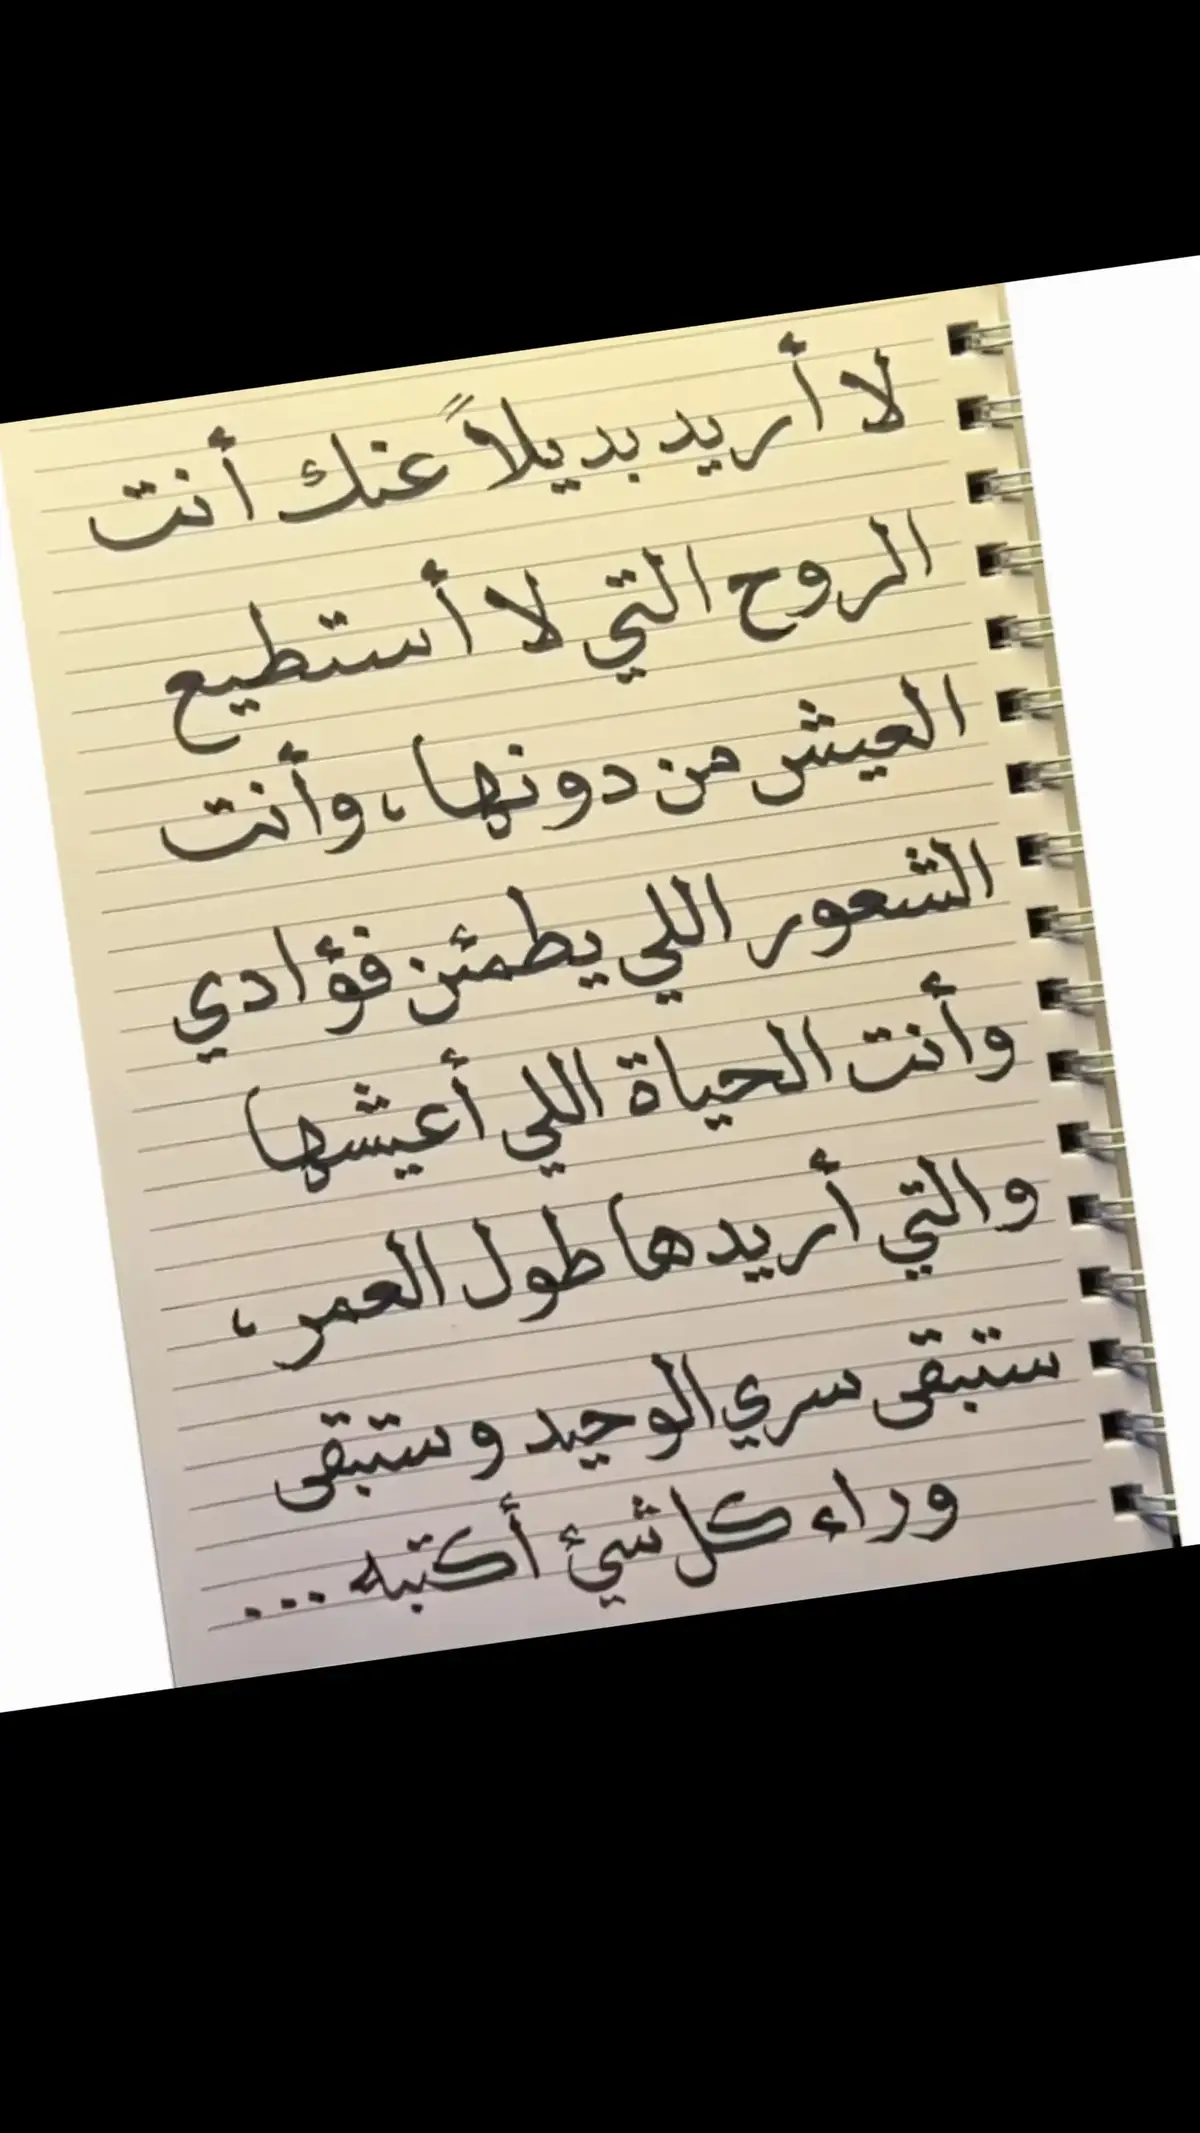 لا أريد بديلاً عنك أنت
الروح التي لا أستطيع
العيش من دونها، وأنت
الشعور اللي يطمئن فؤادي
وأنت الحياة اللي أعيشها
والتي أريدها طول العمر،
ستبقى سري الوحيد وستبقى
وراء كل شيئ أكتبه ...